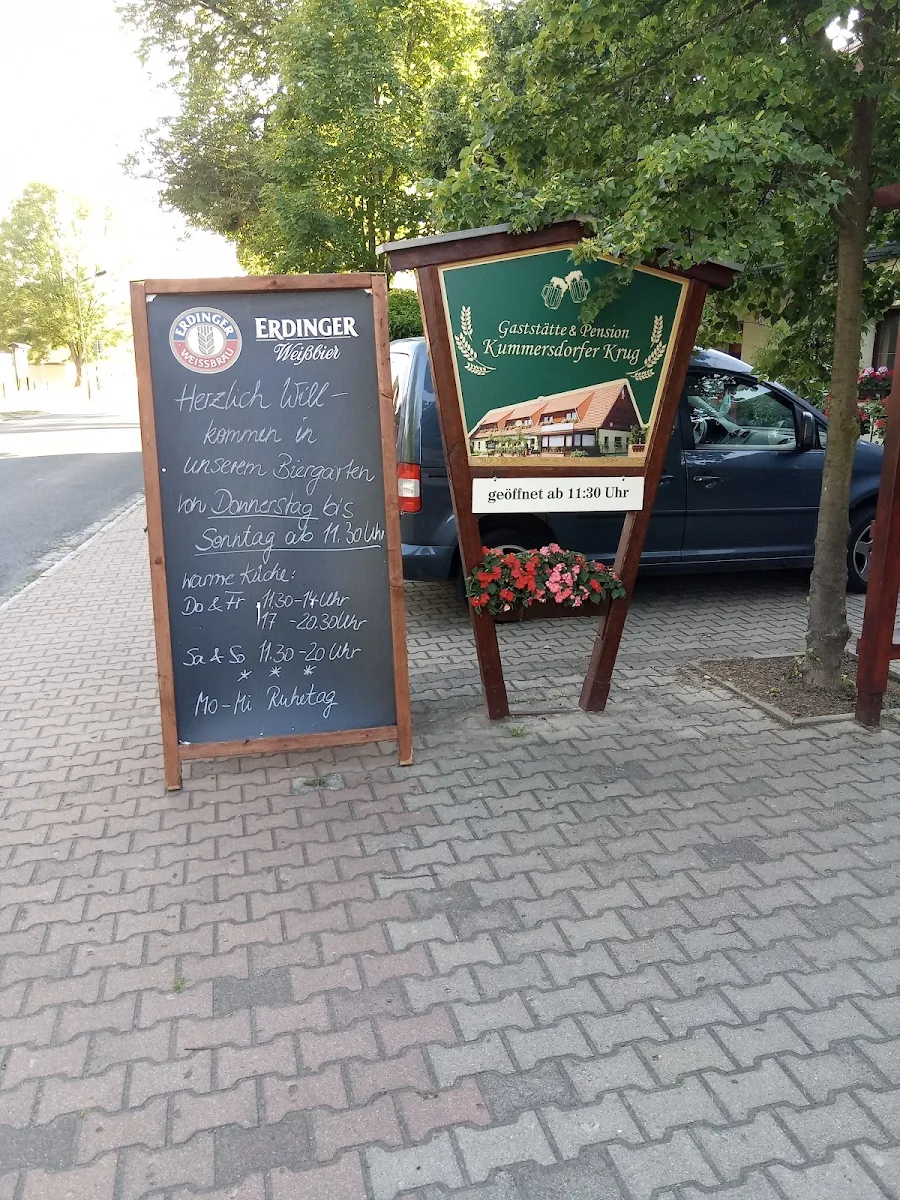 ERDINGER
WEISSBRÄU
ERDINGER
Weißbier
Herzlich Will-
kommen in
unserem Biergarten
von Donnerstag bis
Sonntag ab 11.30 Uhr
warme Küche:
Do & Fr 11.30-14 Uhr
17 -20.30 Uhr
Sa & So 11.30-20 Uhr
* * *
Mo-Mi Ruhetag
Gaststätte & Pension
Kummersdorfer Krug
geöffnet ab 11:30 Uhr